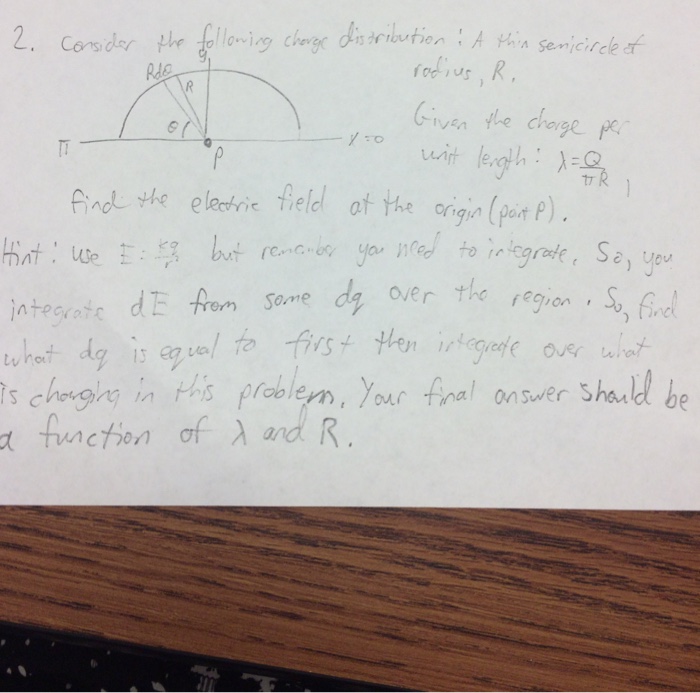 2. Consider the following charge distribution: A thin semicircle of
radius, R.
y
Rdθ
R
θ
π
P
Given the charge per
unit length: λ = Q/πR,
find the electric field at the origin (point P).
Hint: use E = but remember you need to integrate. So, you
integrate dE from some dq over the region. So, find
what dq is equal to first then integrate over what
is changing in this problem. Your final answer should be
a function of λ and R.